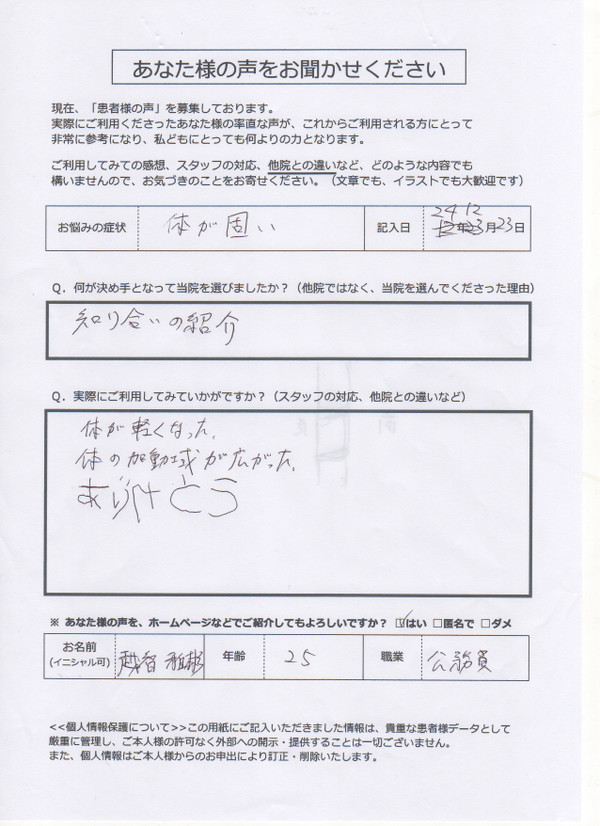 あなた様の声をお聞かせください
現在、「患者様の声」を募集しております。
実際にご利用くださったあなた様の率直な声が、これからご利用される方にとって
非常に参考になり、私どもにとっても何よりの力となります。
ご利用してみての感想、スタッフの対応、他院との違いなど、どのような内容でも
構いませんので、お気づきのことをお寄せください。（文章でも、イラストでも大歓迎です）
お悩みの症状 体が固い 記入日 24 12月23日
Q．何が決め手となって当院を選びましたか？（他院ではなく、当院を選んでくださった理由）
知り合いの紹介
Q．実際にご利用してみていかがですか？（スタッフの対応、他院との違いなど）
体が軽くなった。
体の加動域が広がった。
ありがとう
※ あなた様の声を、ホームページなどでご紹介してもよろしいですか？ ☑はい □匿名で □ダメ
お名前 越智 年齢 25 職業 公務員
(イニシャル可)
<<個人情報保護について>>この用紙にご記入いただきました情報は、貴重な患者様データとして
厳重に管理し、ご本人様の許可なく外部への開示・提供することは一切ございません。
また、個人情報はご本人様からのお申出により訂正・削除いたします。